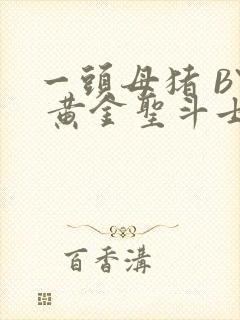 一頭母猪 BY
黄金聖斗士
百香溝